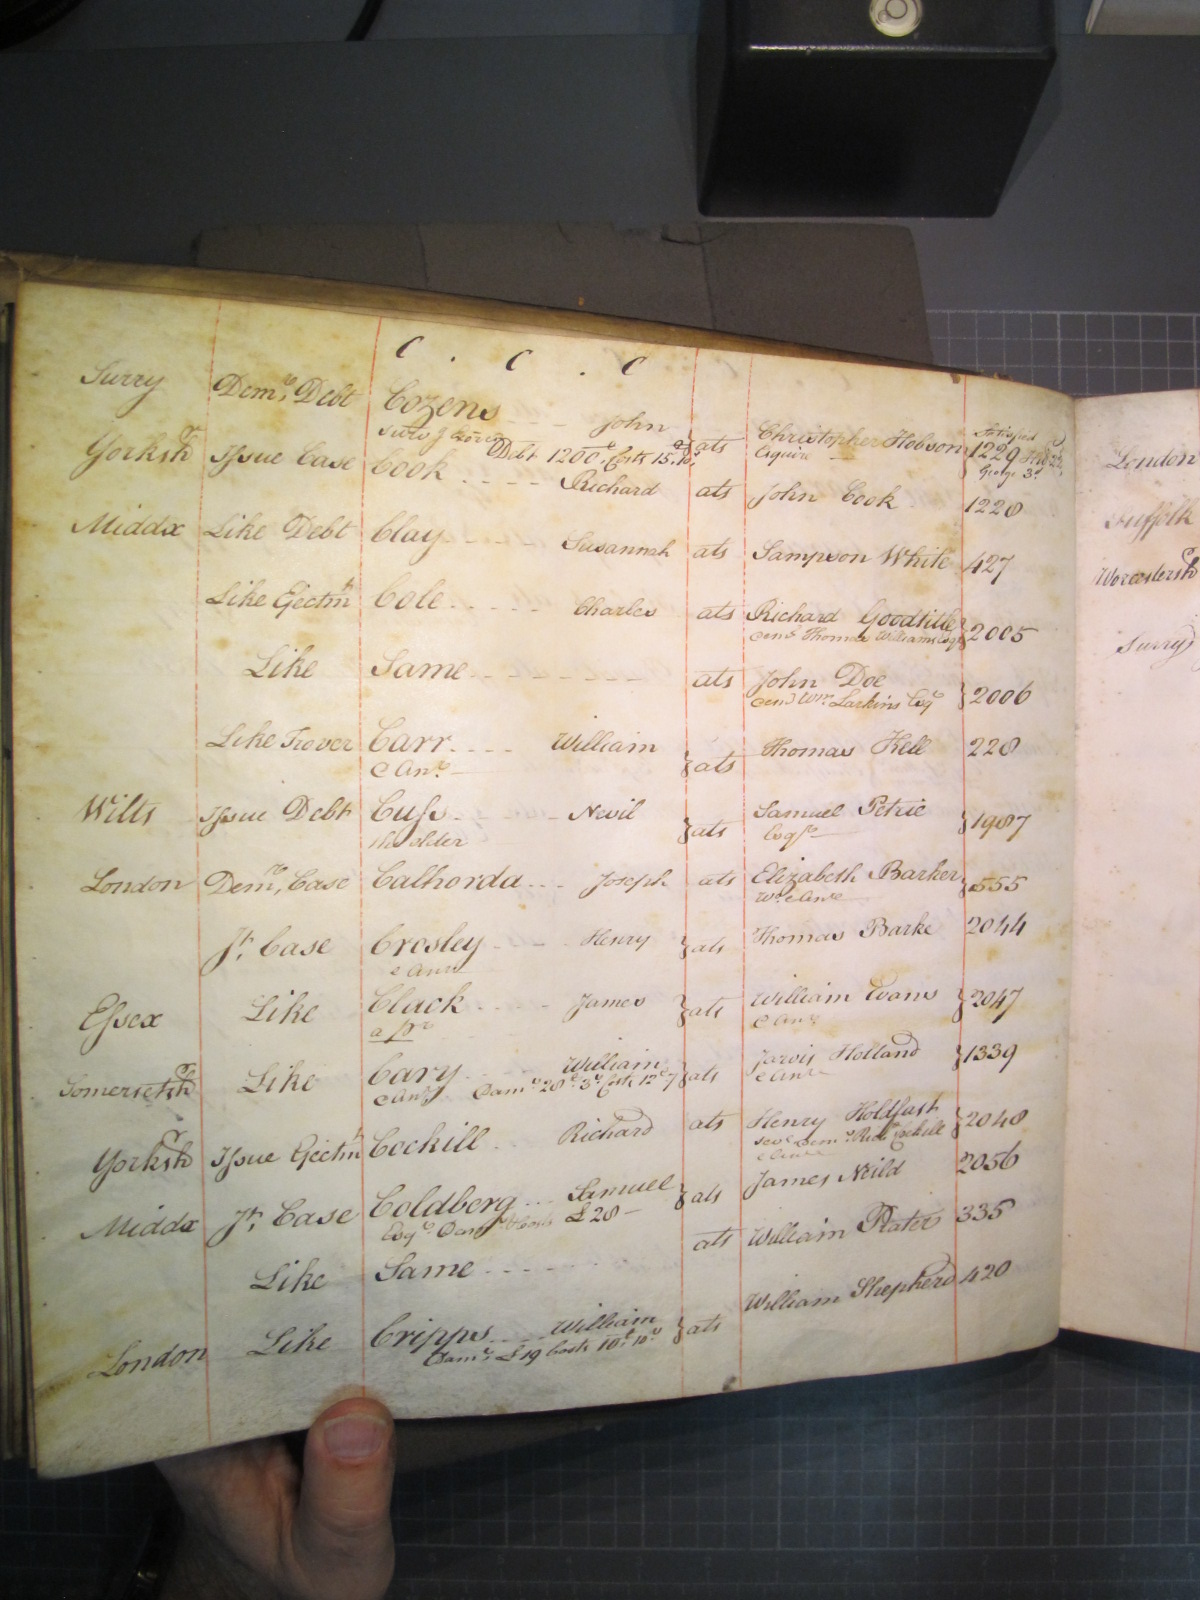 C . C . C
Surry Dem.r Debt Cozens John } ats Christopher Hobson 1229
Debt 1200 Costs 15.10 Esquire Satisfied George 3d
Yorksh Issue Case Cook Richard ats John Cook 1228
Middx Like Debt Clay Susannah ats Sampson White 427
Like Ejectmt Cole Charles ats Richard Goodtitle } 2005
Thomas Williams Esqr
Like Same ats John Doe } 2006
Wm. Larkins Esqr
Like Trover Carr William } ats Thomas Kell 228
& Anr
Wilts Issue Debt Cuss Nevil } ats Samuel Petrie } 1987
the older Esqr
London Demr Case Calhorda Joseph ats Elizabeth Barker } 555
Jt. Case Crosley Henry } ats Thomas Barke 2044
& Anr
Essex Like Clack James } ats William Evans } 2047
& Anr
Somersetsh Like Cary William } ats Jarvis Holland } 1339
& Anr Dams 28 3 Costs 12 7 & Anr
Yorksh Issue Ejectmt Cockill Richard ats Henry Holdfast } 2048
Cockill
Middx Jt. Case Coldberg Samuel } ats James Neild 2056
Esqr £ 28
Like Same ats William Plater 335
London Like Cripps William } ats William Shepherd 420
Dams £19 Costs 10 10
London
Suffolk
Worcestersh
Surry